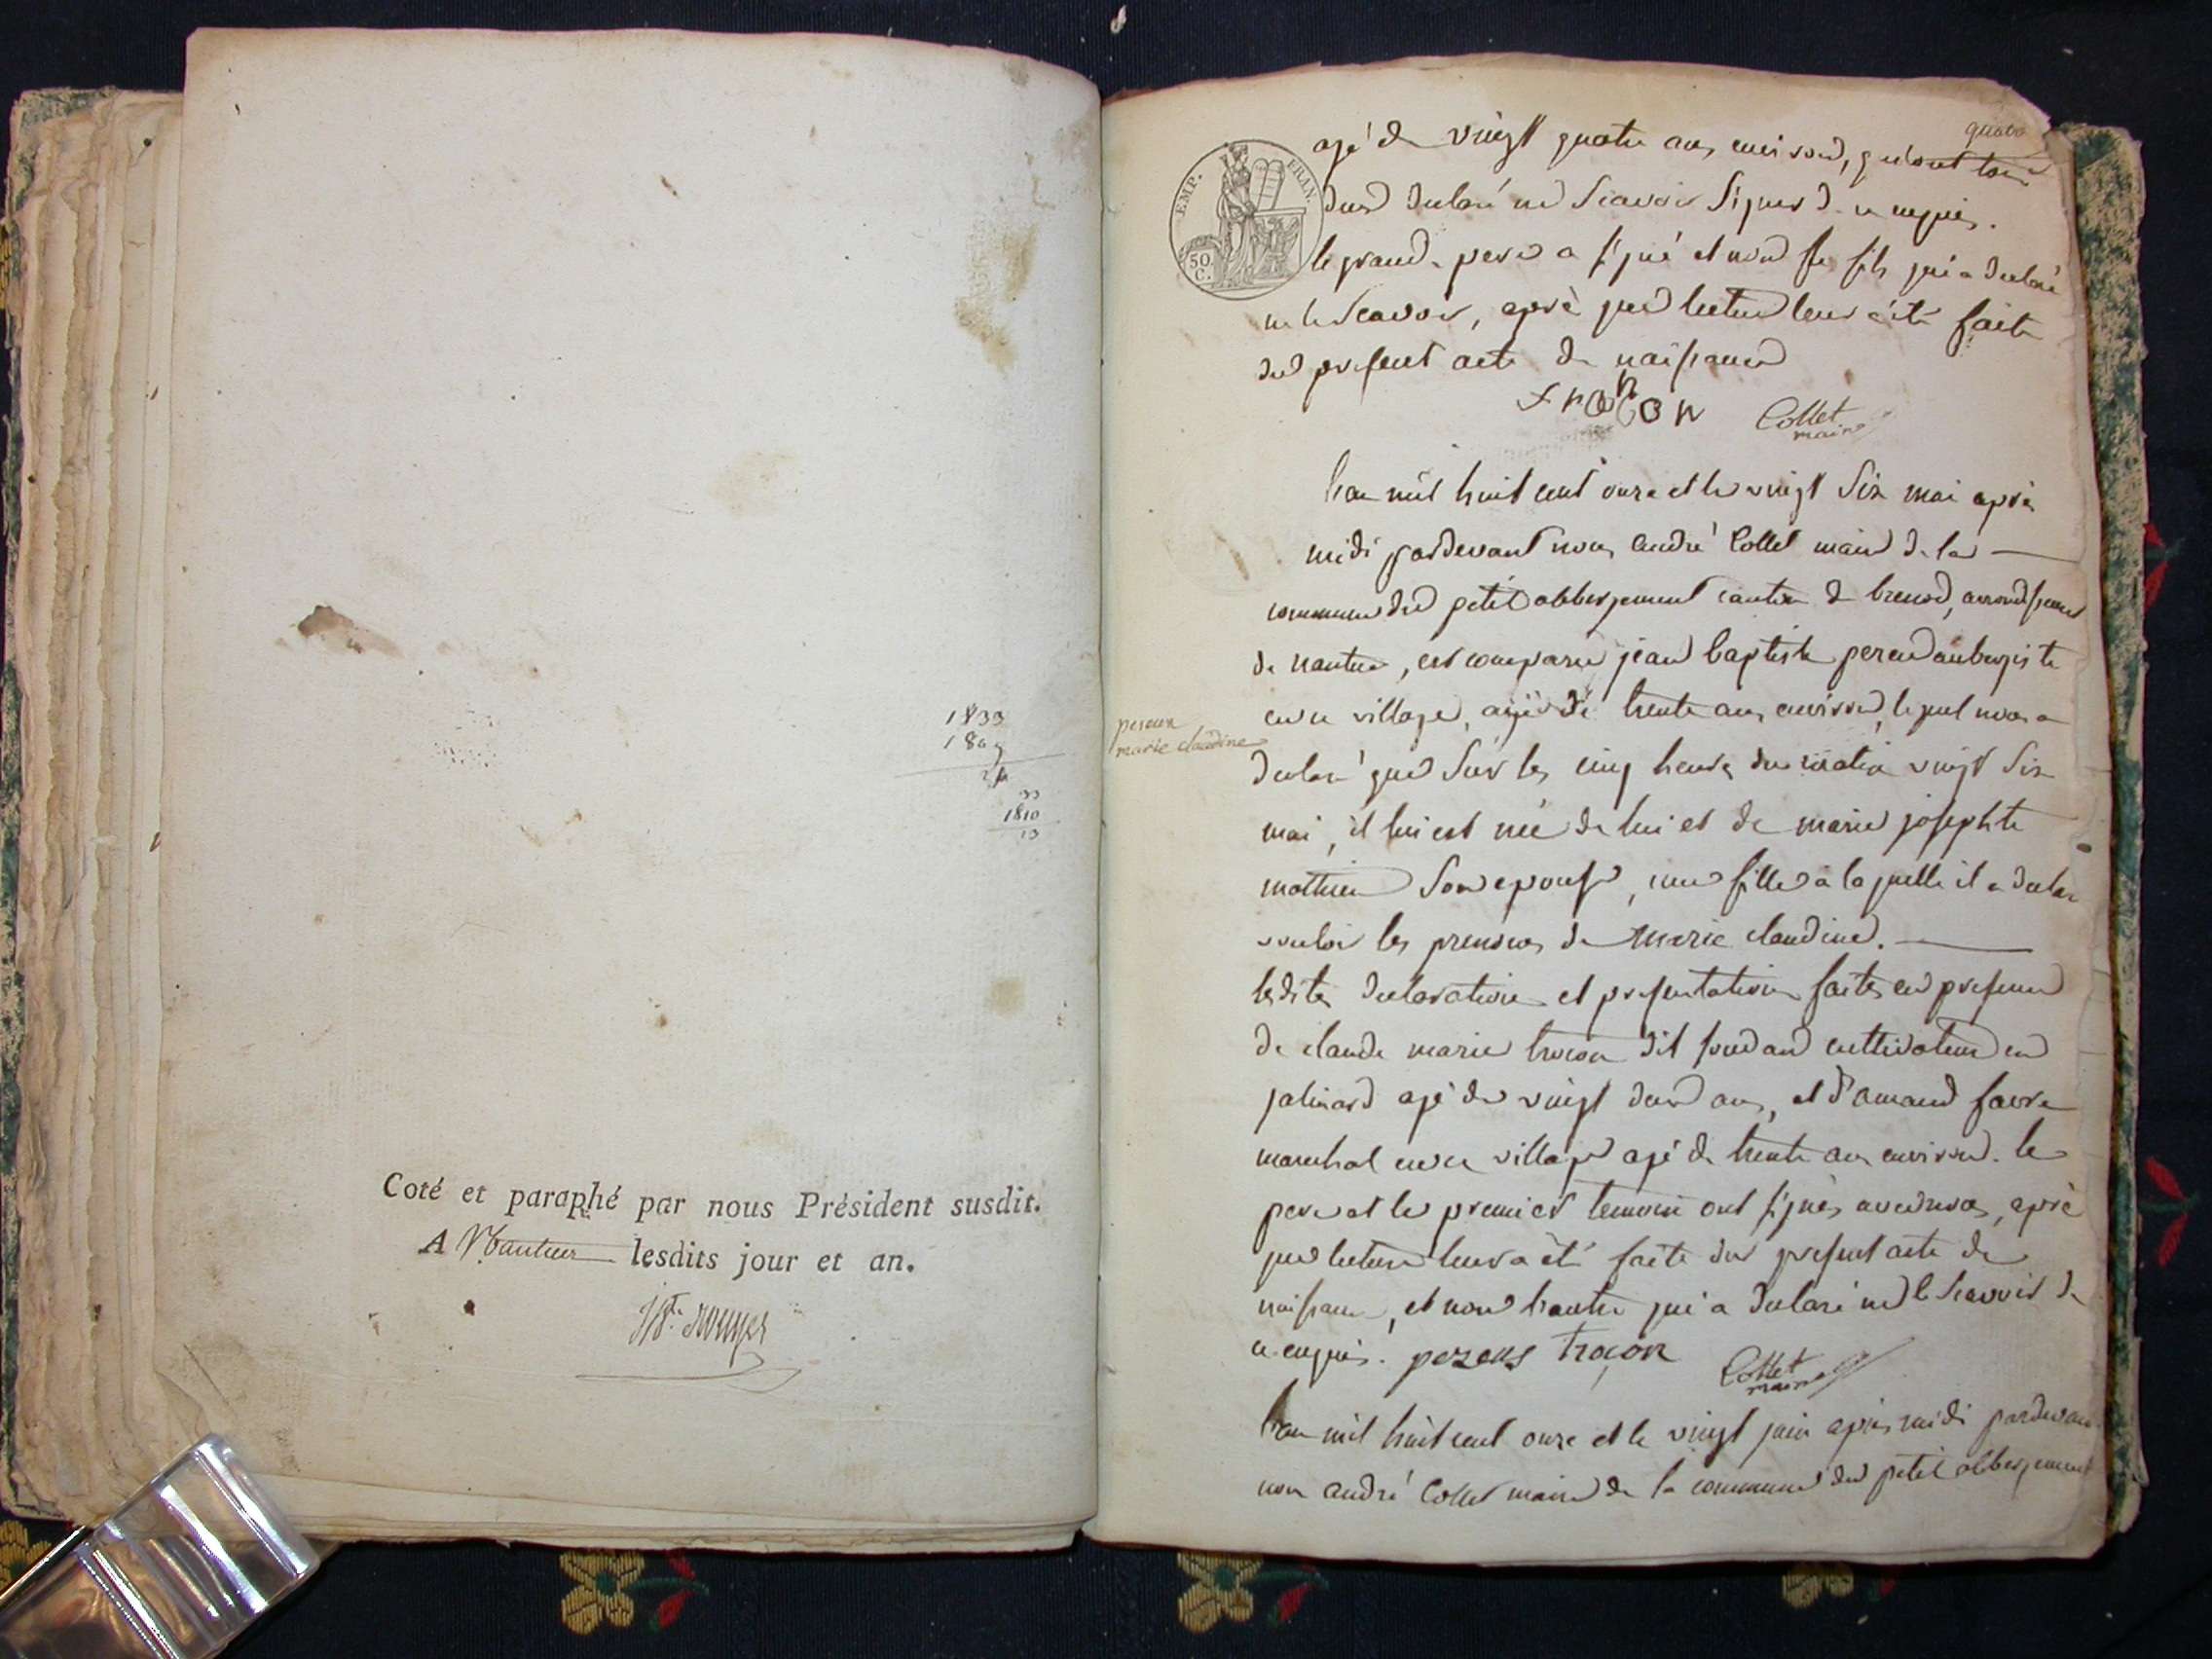 1833
1809
24
33
1810
13
Coté et paraphé par nous Président susdit.
A Nantua lesdits jour et an.
quatre
EMP. FRAN.
50 C.
agé de vingt quatre ans environ, qui ont tous
deux declaré ne Scavoir Signer de ce enquis.
le grand-pere a signé et non le fils qui a declaré
ne le Scavoir, aprè que lecture leur a été faite
du present acte de naissance
Collet
maire
L'an mil huit cent onze et le vingt Six mai aprè
midi pardevant nous andré Collet maire de la
commune du petit abbergement canton de brenod, arrondissement
de nantua, est comparu jean baptiste pereux aubergiste
en ce village, agé de trente ans environ, lequel nous a
pereux
marie claudine
declaré que Sur les cinq heures du matin vingt Six
mai, il lui est née de lui et de marie josephte
mathieu Son epouse, une fille à laquelle il a declaré
vouloir les prenoms de Marie claudine.
lesdites declaration et presentation faites en presence
de claude marie trocon dit cultivateur en
jalinard agé de vingt deux ans, et d'amand favre
marechal en ce village agé de trente ans environ. le
pere et le premier temoin ont signés avec nous, aprè
que lecture leur a été faite du present acte de
naissance, et non l'autre qui a declaré ne le Scavoir de
ce enquis. pereux trocon
Collet
maire
L'an mil huit cent onze et le vingt juin aprè midi pardevant
nous andré Collet maire de la commune du petit abbergement